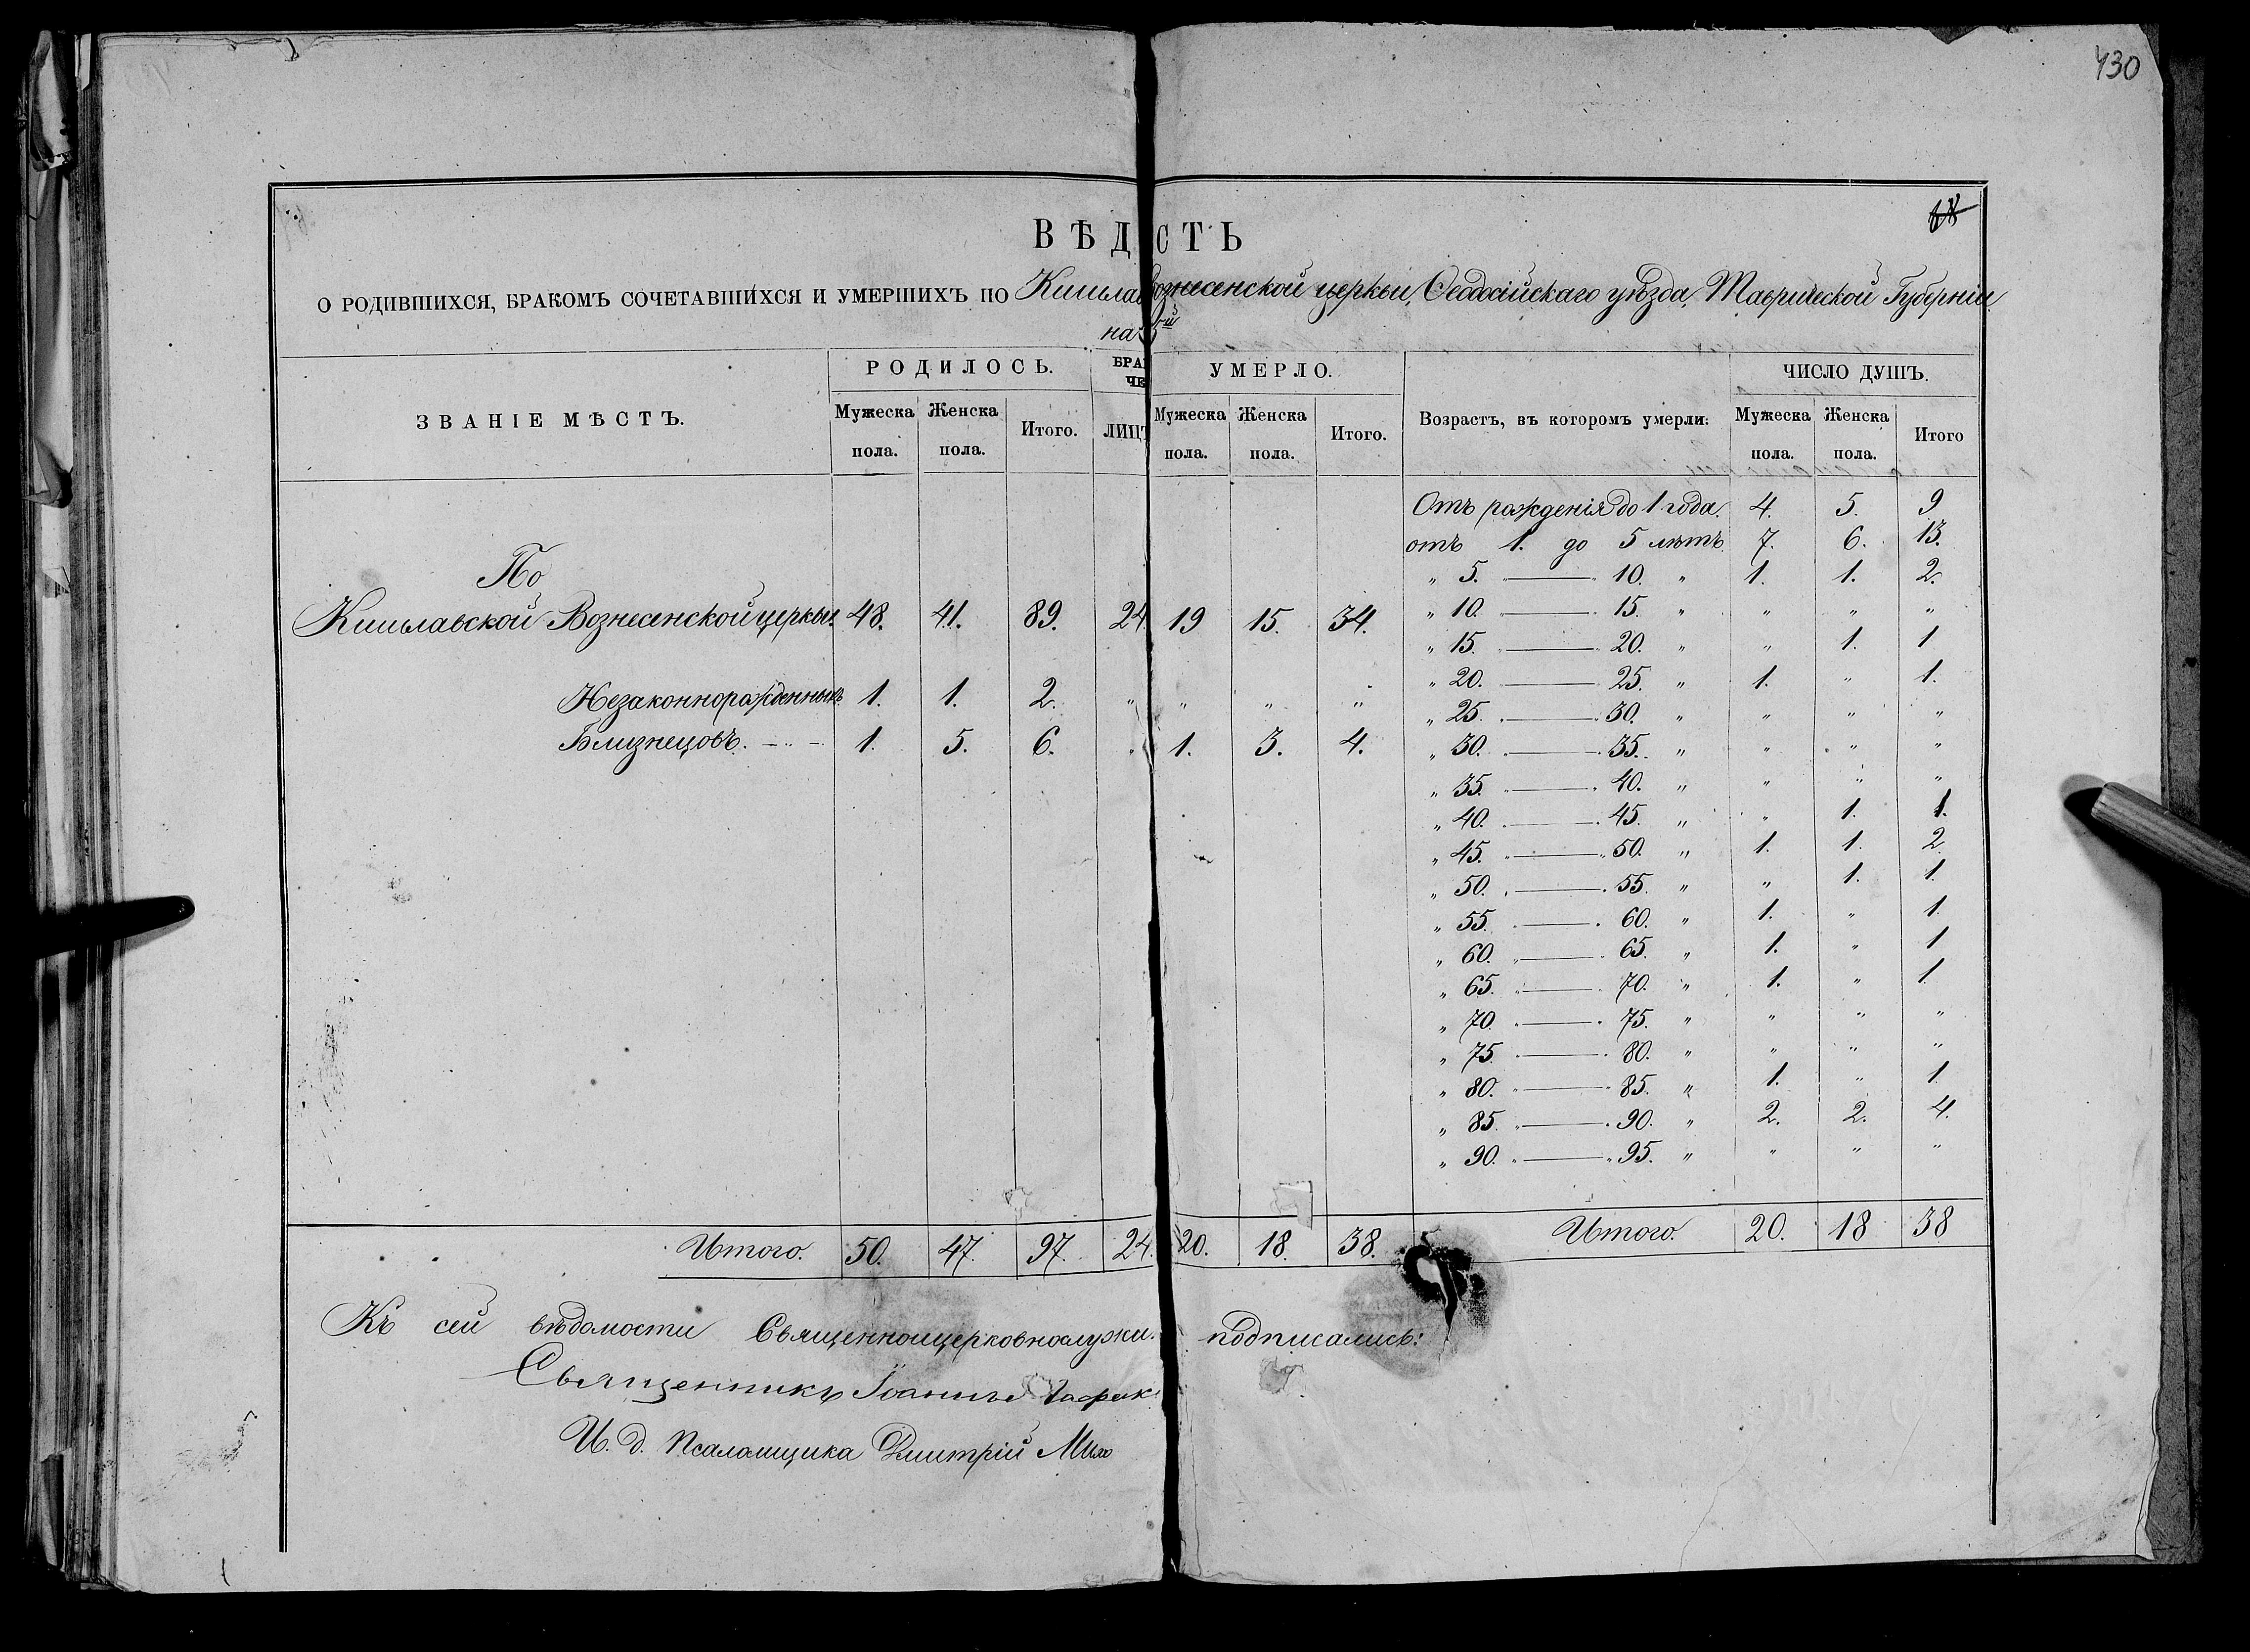 430
ВѢД СТЬ
О РОДИВШИХСЯ, БРАКОМЪ СОЧЕТАВШИХСЯ И УМЕРШИХЪ ПО Кишлав Вознесенской церкви, Ѳеодосійскаго уѣзда, Таврической Губерніи
на
РОДИЛОСЬ. БРА УМЕРЛО. ЧИСЛО ДУШЪ.
ЧЕ
ЗВАНІЕ МѢСТЪ. Мужеска пола. Женска пола. Итого. ЛИЦЪ Мужеска пола. Женска пола. Итого. Возрастъ, въ которомъ умерли: Мужеска пола. Женска пола. Итого
Отъ рожденія до 1 года. 4. 5. 9
отъ 1. до 5 лѣтъ. 7. 6. 13.
По
" 5. — 10. " 1. 1. 2.
Кишлавской Вознесенской церкви. 48. 41. 89. 24 19 15. 34.
" 10. — 15. " " " "
" 15. — 20. " " 1. 1
" 20. — 25. " 1. " 1.
Незаконнорожденныхъ 1. 1. 2. " " " "
" 25. — 30. " " " "
Близнецовъ. — 1. 5. 6. " 1. 3. 4.
" 30. — 35. " " " "
" 35. — 40. " " " "
" 40. — 45. " " 1. 1.
" 45. — 50. " 1. 1. 2.
" 50. — 55. " " 1. 1.
" 55. — 60. " 1. " 1.
" 60. — 65. " 1. " 1
" 65. — 70. " 1. " 1.
" 70. — 75. " " " "
" 75. — 80. " " " "
" 80. — 85. " 1. " 1.
" 85. — 90. " 2. 2. 4.
" 90. — 95. " " " "
Итого. 50. 47. 97. 24. 20. 18. 38. Итого. 20. 18 38
Къ сей вѣдомости Священноцерковнослужи подписались:
Священникъ Іоаннъ
И. д. Псаломщика Дмитрій